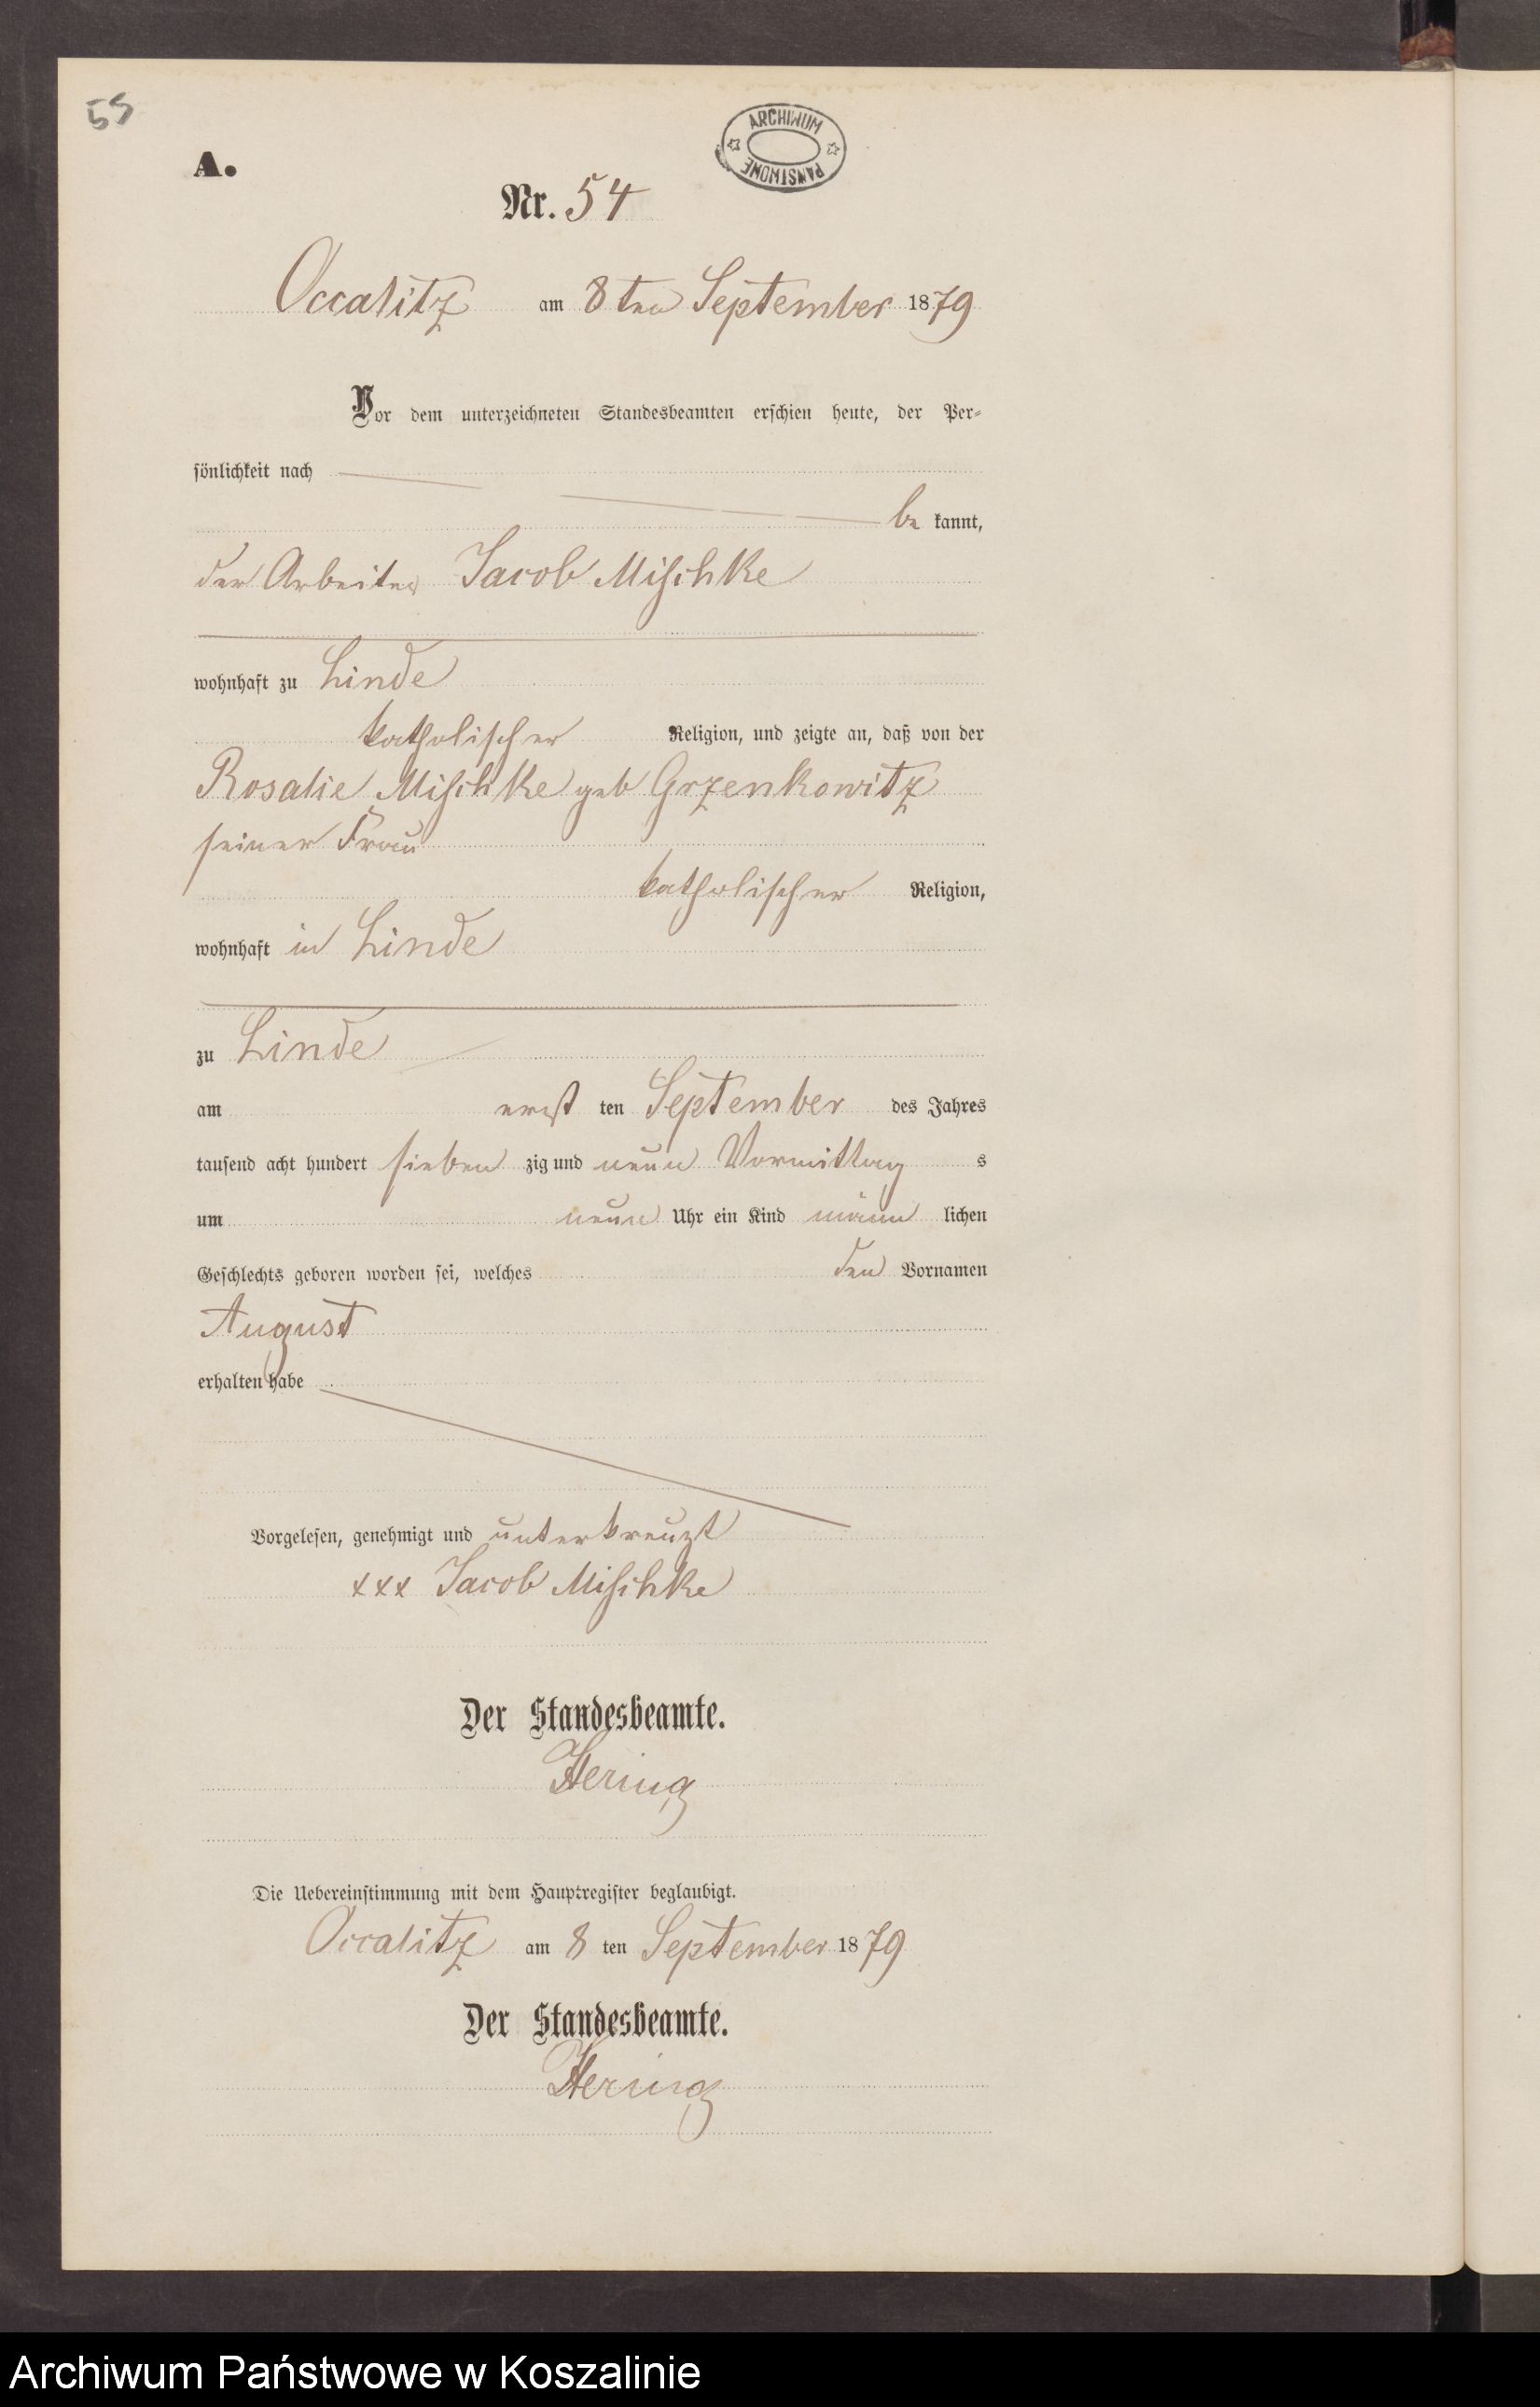 55
ARCHIWUM
PAŃSTWOWE
A.
Nr. 54
Occalitz am 8ten September 1879
Vor dem unterzeichneten Standesbeamten erschien heute, der Per-
sönlichkeit nach
be kannt,
der Arbeiter Jacob Mischke
wohnhaft zu Linde
katholischer Religion, und zeigte an, daß von der
Rosalie Mischke geb Grzenkowitz
seiner Frau
katholischer Religion,
wohnhaft in Linde
zu Linde
am erst ten September des Jahres
tausend acht hundert sieben zig und neun Vormittag s
um neun Uhr ein Kind männ lichen
Geschlechts geboren worden sei, welches den Vornamen
August
erhalten habe
Vorgelesen, genehmigt und unterkreuzt
xxx Jacob Mischke
Der Standesbeamte.
Hering
Die Uebereinstimmung mit dem Hauptregister beglaubigt.
Occalitz am 8 ten September 1879
Der Standesbeamte.
Hering
Archiwum Państwowe w Koszalinie